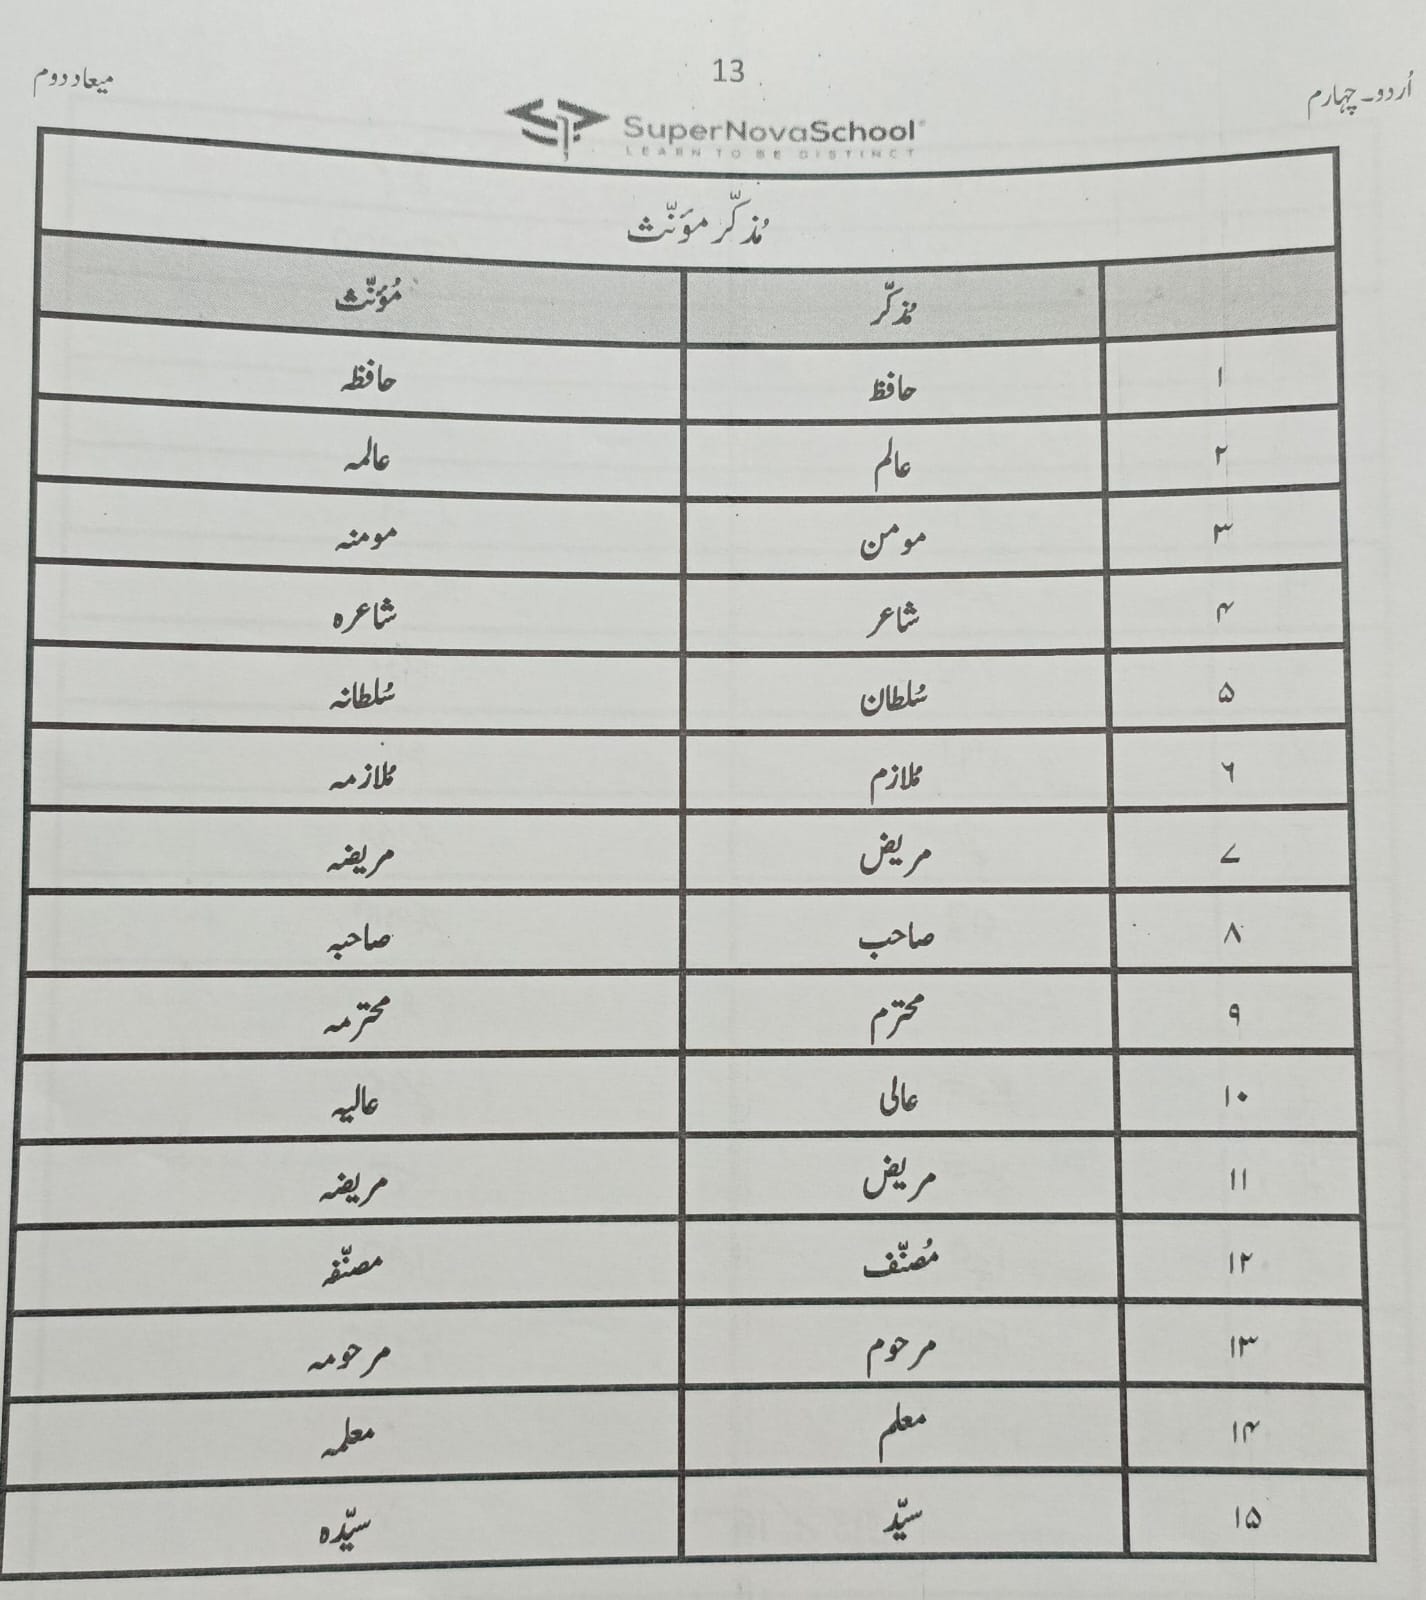 اُردو۔ چہارم 13 میعاد دوم
SuperNovaSchool
LEARN TO BE DISTINCT
مُذکّر مؤنّث
مُذکّر مُؤنّث
۱ حافظ حافظہ
۲ عالم عالمہ
۳ مومن مومنہ
۴ شاعر شاعرہ
۵ سُلطان سُلطانہ
۶ مُلازم مُلازمہ
۷ مریض مریضہ
۸ صاحب صاحبہ
۹ محترم محترمہ
۱۰ عالی عالیہ
۱۱ مریض مریضہ
۱۲ مُصنّف مصنّفہ
۱۳ مرحوم مرحومہ
۱۴ معلم معلمہ
۱۵ سیّد سیّدہ